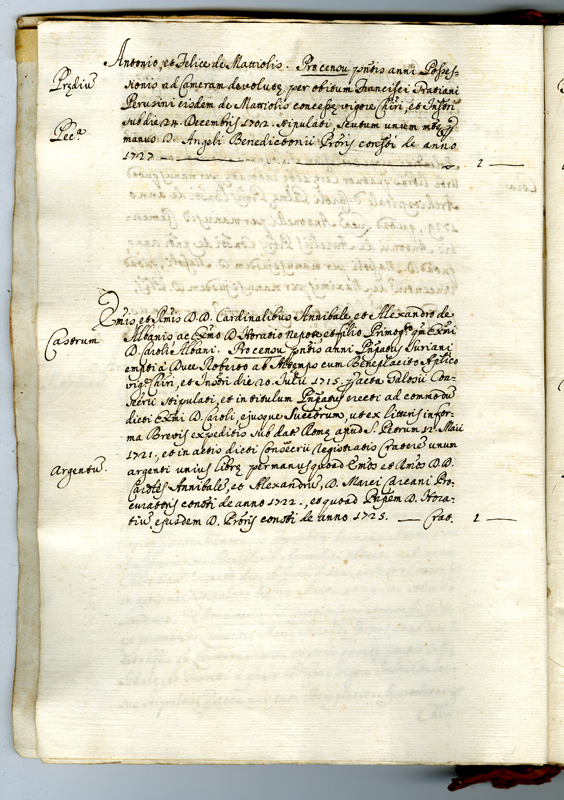 Antonio, et Felice de Mattiolis. Pro censu pntis anni Posses-
Prediu͂ sionis ad Cameram devolutę per obitum Francisci Gratiani
Perusini eisdem de Mattiolis concessę vigore Chiri, et Instri
sub die 24. Decembris 1702. stipulati Scutum unum mtę
Pecᵃ manus D. Angeli Benedictonii Proris consti de anno
1727 — 1 —
Emis et Rmis D.D. Cardinalibus Annibale et Alexandro de
Castrum Albanis ac Exmo D. Horatio Nepote et filio Primogᵒ qm Exmi
D. Caroli Albani. Pro censu pntis anni Pnpatus Suriani
empti à Duce Roberto ab Altemps cum Beneplacito Aplico
vige Chiri, et Instri die 20. Julii 1715. p acta Galosii Con-
sterii stipulati, et in titulum Pnpatus erecti ad commodu͂
dicti Exmi D. Caroli, ejusque Succrum, ut ex litteris in for-
ma Brevis expeditis sub dat. Romę apud S. Petrum 12. Maii
1721, et in actis dicti Conserii Registratis Craterem unum
Argentu͂. argenti unius librę per manus quoad Emos et Rmos D.D.
Cardles Annibalę, et Alexandru͂, D. Marci Carcani Pro-
curatoris consti de anno 1722., et quoad Pnpem D. Hora-
tiu͂ ejusdem D. Proris consti de anno 1725. — Crat. 1 —